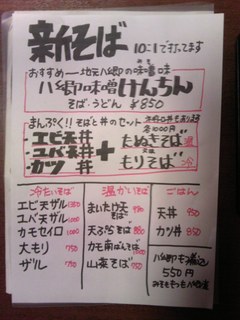 新そば 10:1で打ってます
おすすめ―地元八郷の味噌味
八郷味噌けんちん
そば・うどん ¥850
まんぷく!! そばと丼のセット
各1000円
エビ天丼
ユバ天丼
カツ丼
+
たぬきそば 温
又は
もりそば 冷
冷たいそば
エビ天ザル
ユバ天ザル
カモセイロ
大もり 750
ザル 750
温かいそば
まいたけ天そば
天ぷらそば
カモ南ばんそば
山菜そば 750
ごはん
天丼 850
カツ丼 850
550円